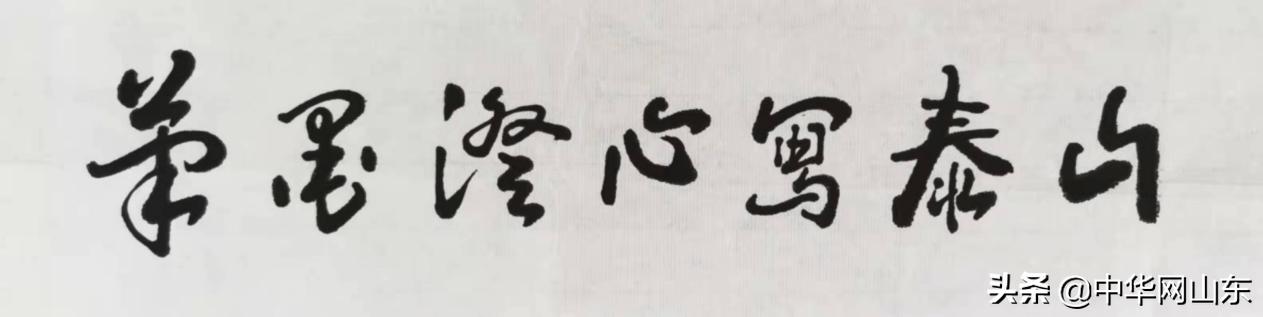 笔墨澄心寫泰山
头条 @中华网山东